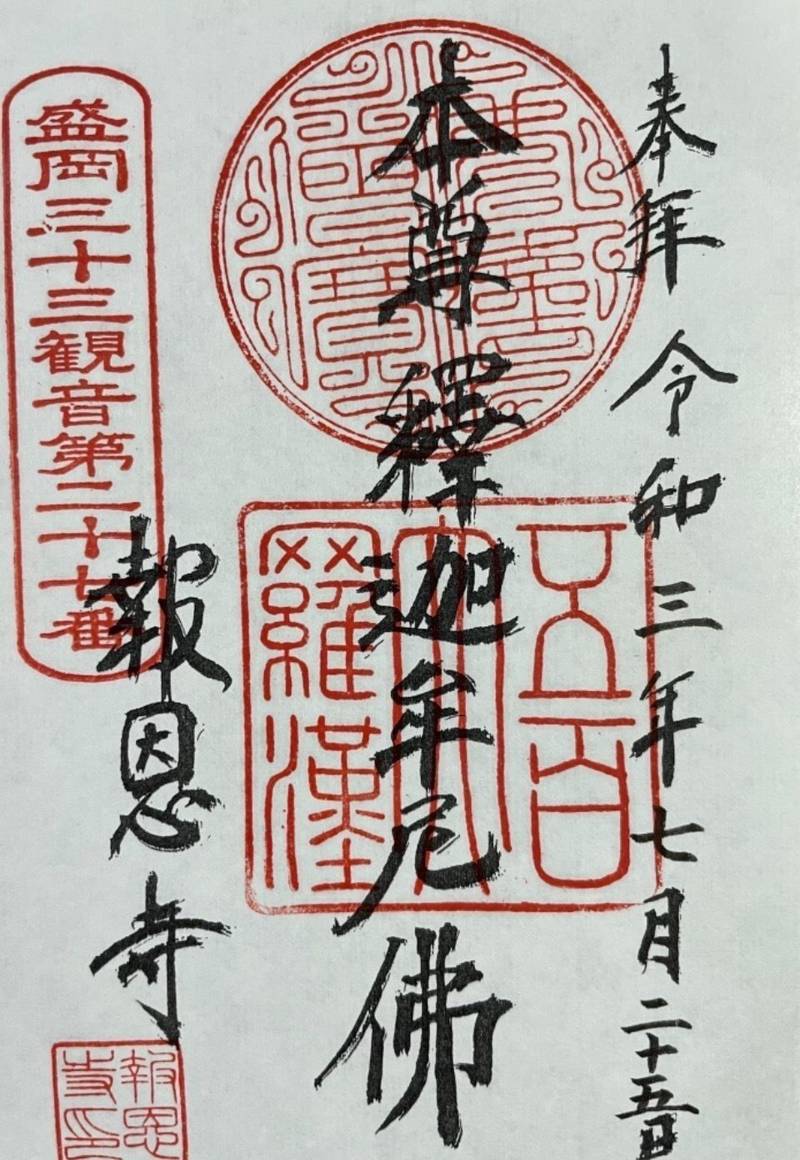 奉拝 令和三年七月二十五日
本尊釋迦牟尼佛
五百大羅漢
報恩寺
報恩寺印
盛岡三十三観音第二十七番